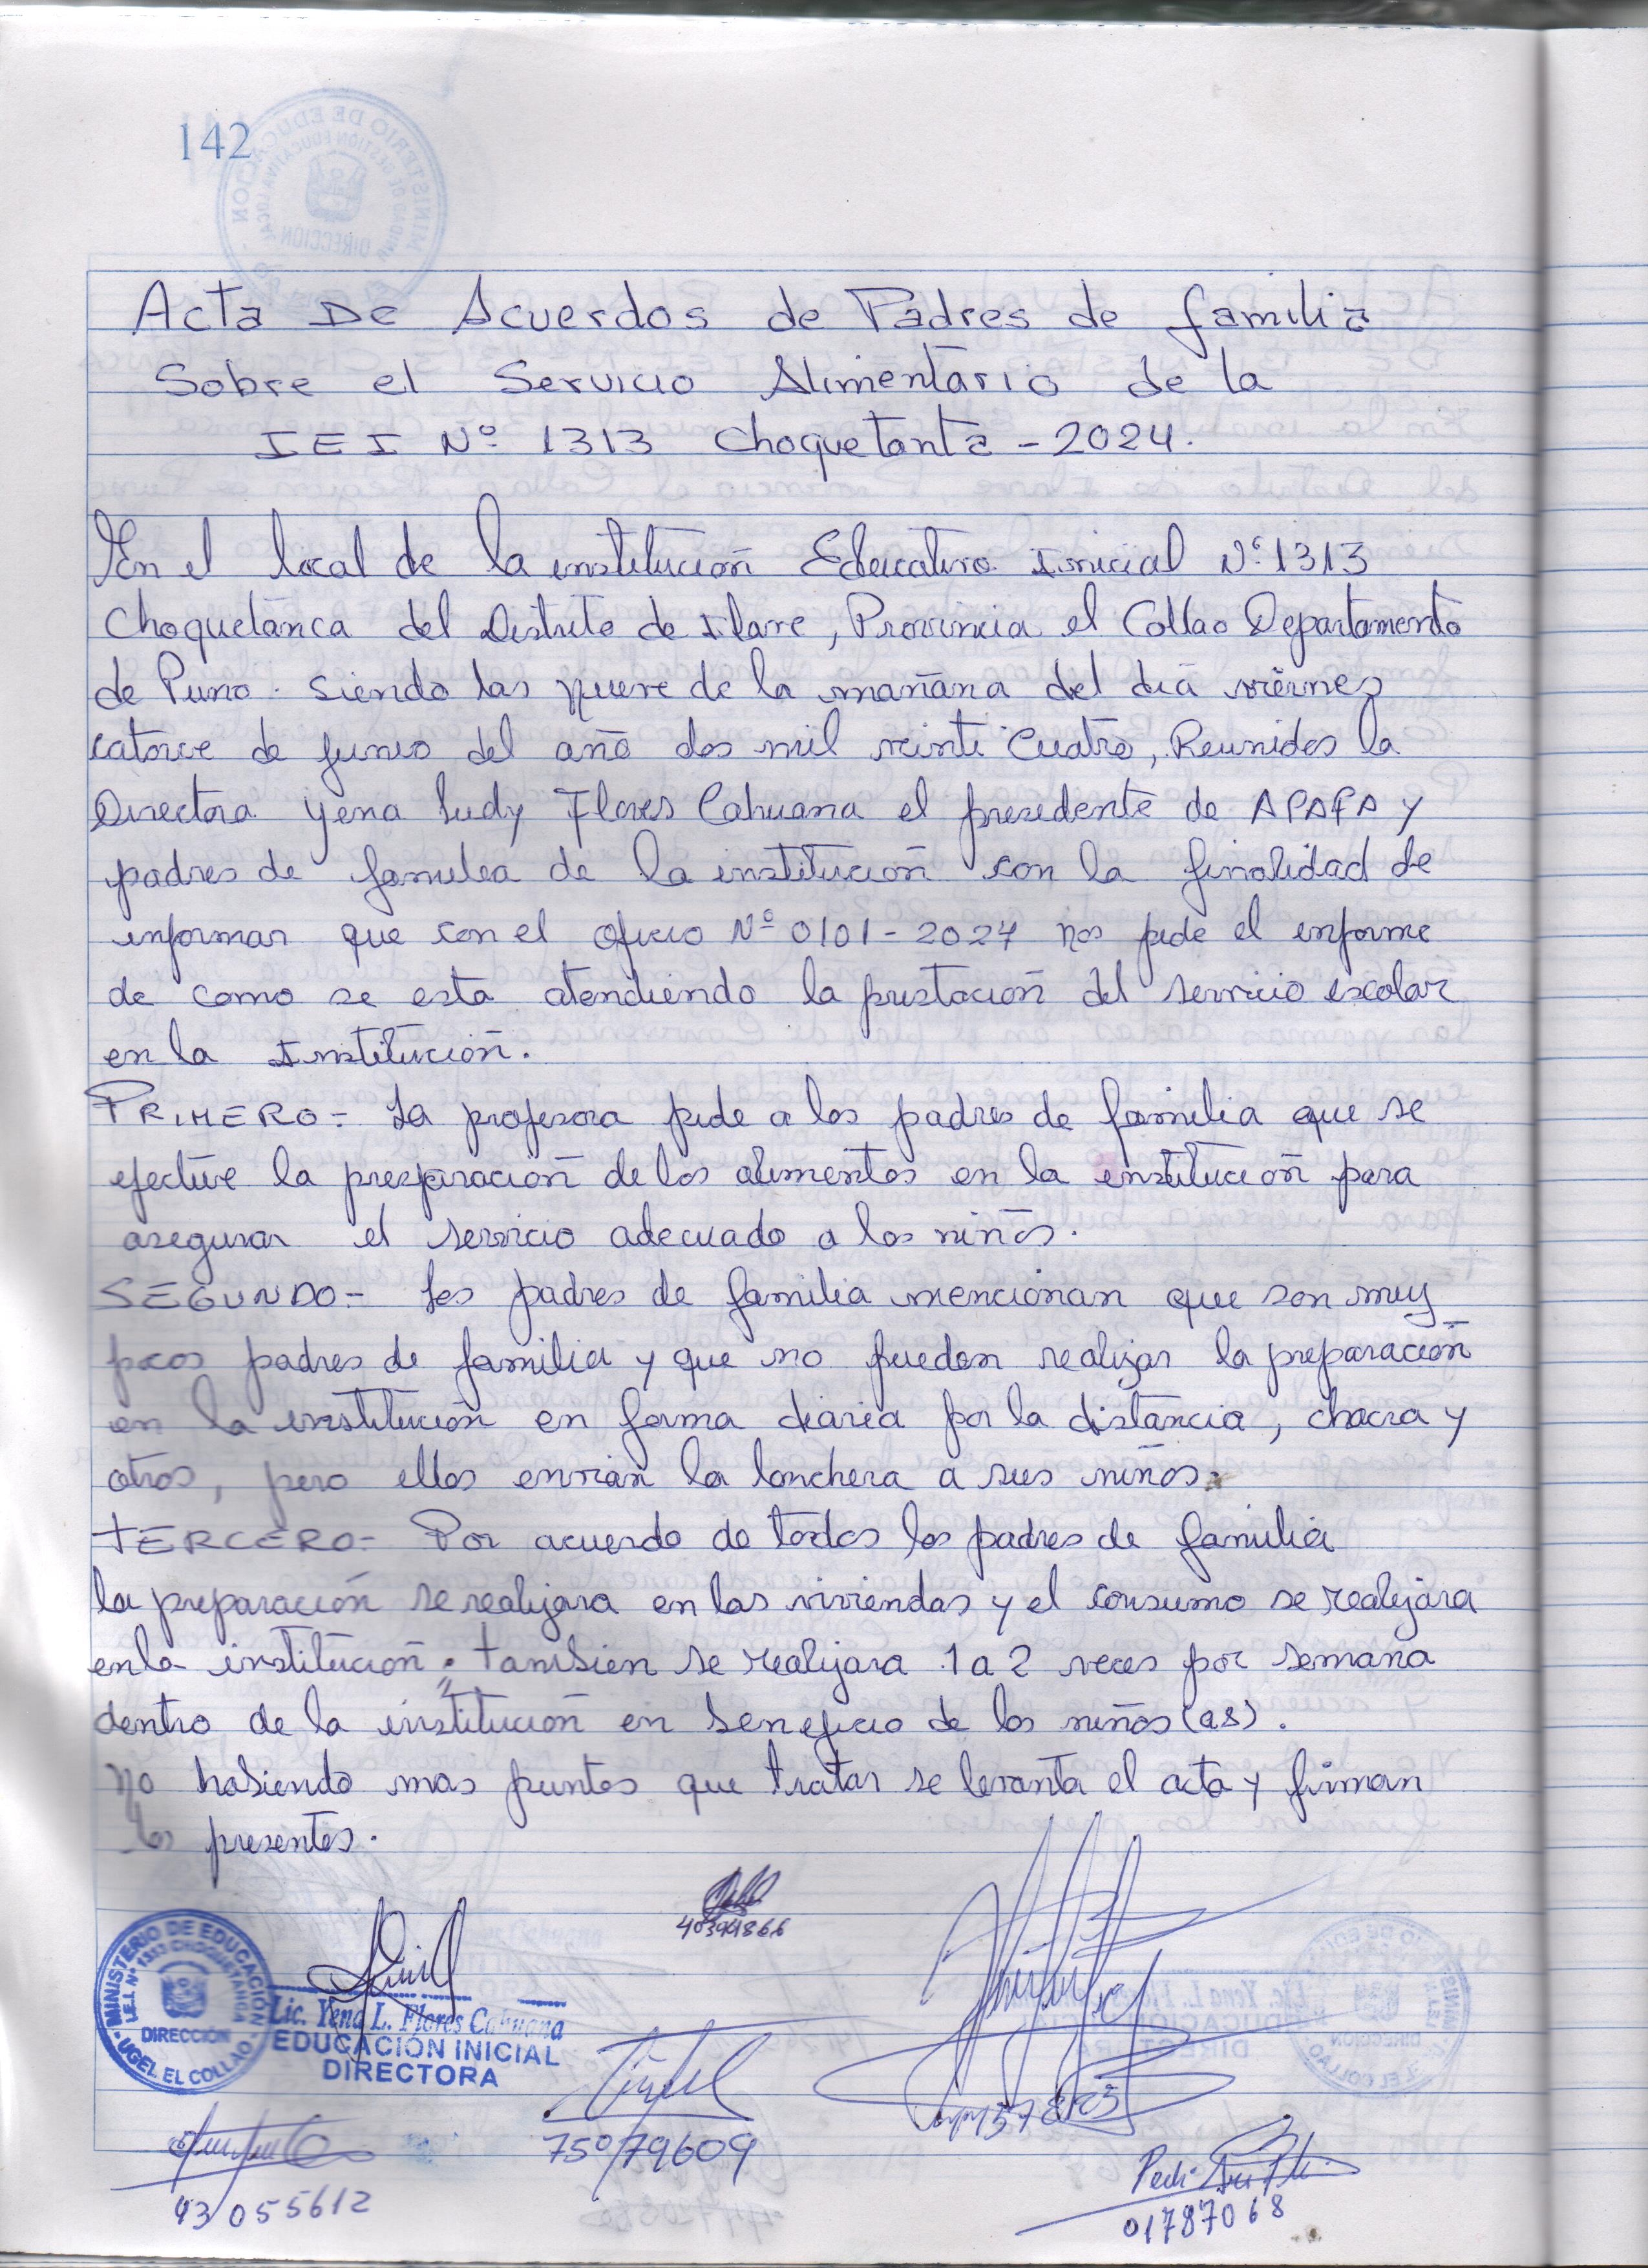 142
Acta De Acuerdos de Padres de familia
Sobre el Servicio Alimentario de la
IEI Nº 1313 Choquetanta - 2024.
En el local de la institución Educativa Inicial Nº 1313
Choquetanca del Distrito de Ilave, Provincia el Collao Departamento
de Puno. siendo las nueve de la mañana del dia viernes
catorce de junio del año dos mil veinti cuatro, Reunidos la
Directora Yena Ludy Flores Cahuana el presidente de APAFA y
padres de familea de la institución con la finalidad de
informar que con el oficio Nº 0101-2024 nos pide el informe
de como se esta atendiendo la prestación del servicio escolar
en la Institución.
PRIMERO.- La profesora pide a los padres de familia que se
efective la preparación de los alimentos en la institución para
asegurar el servicio adecuado a los niños.
SEGUNDO.- Los padres de familia mencionan que son muy
pocos padres de familia y que no pueden realizar la preparación
en la institución en forma diaria por la distancia, chacra y
otros, pero ellos envian la lonchera a sus niños.
TERCERO.- Por acuerdo de todos los padres de familia
la preparación se realizara en las viviendas y el consumo se realizara
en la institución; tambien se realizara 1 a 2 veces por semana
dentro de la institución en beneficio de los niños (as).
No habiendo mas puntos que tratar se levanta el acta y firman
los presentes.
40394866
MINISTERIO DE EDUCACIÓN
I.E.I. Nº 1313 CHOQUETANCA
DIRECCIÓN
UGEL EL COLLAO
Lic. Yena L. Flores Cahuana
EDUCACIÓN INICIAL
DIRECTORA
75079609
43055612
01787068